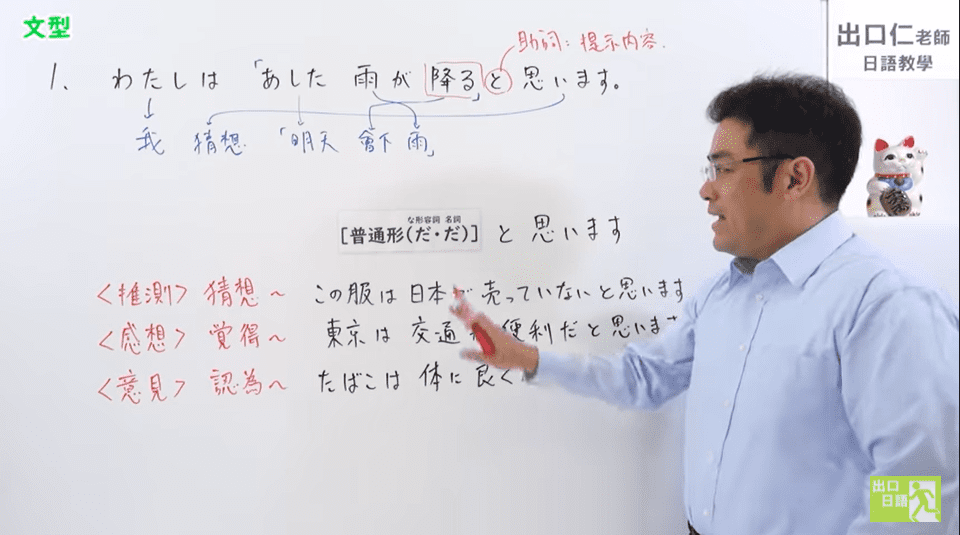 文型
出口仁老師
日語教學
助詞：提示內容.
1. わたしは「あした 雨が 降る」と 思います。
我 猜想 「明天 會下 雨」
な形容詞 名詞
[普通形(だ・だ)] と 思います
<推測> 猜想~ この服は 日本 売っていないと思います
<感想> 覚得~ 東京は 交通 便利だと思います
<意見> 認為~ たばこは 体に 良く
出口
日語